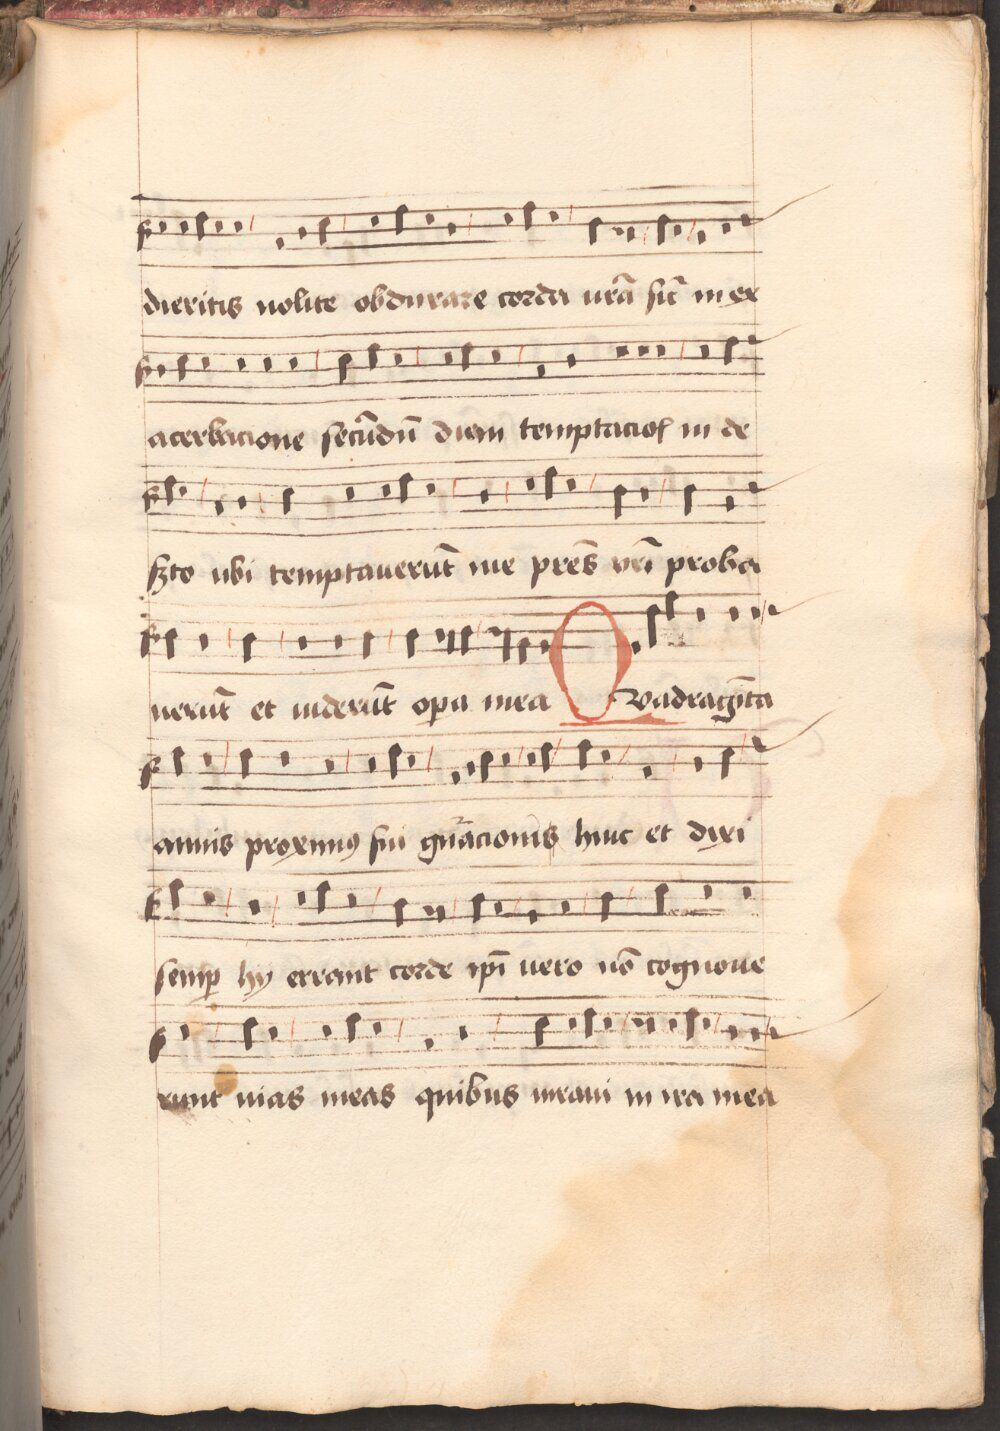 dieritis nolite obdurare corda urā sic̄ in ex
acerbacione secūdū diem temptaciōs in de
s̄to ubi temptauerūt me pres̄ vrī proba
uerūt et uiderūt opa mea Quadragīta
annis proximꝰ fui gn̄acionis huic et dixi
semp hij errant corde ip̄i uero nō cognoue
runt uias meas quibus iuraui in ira mea